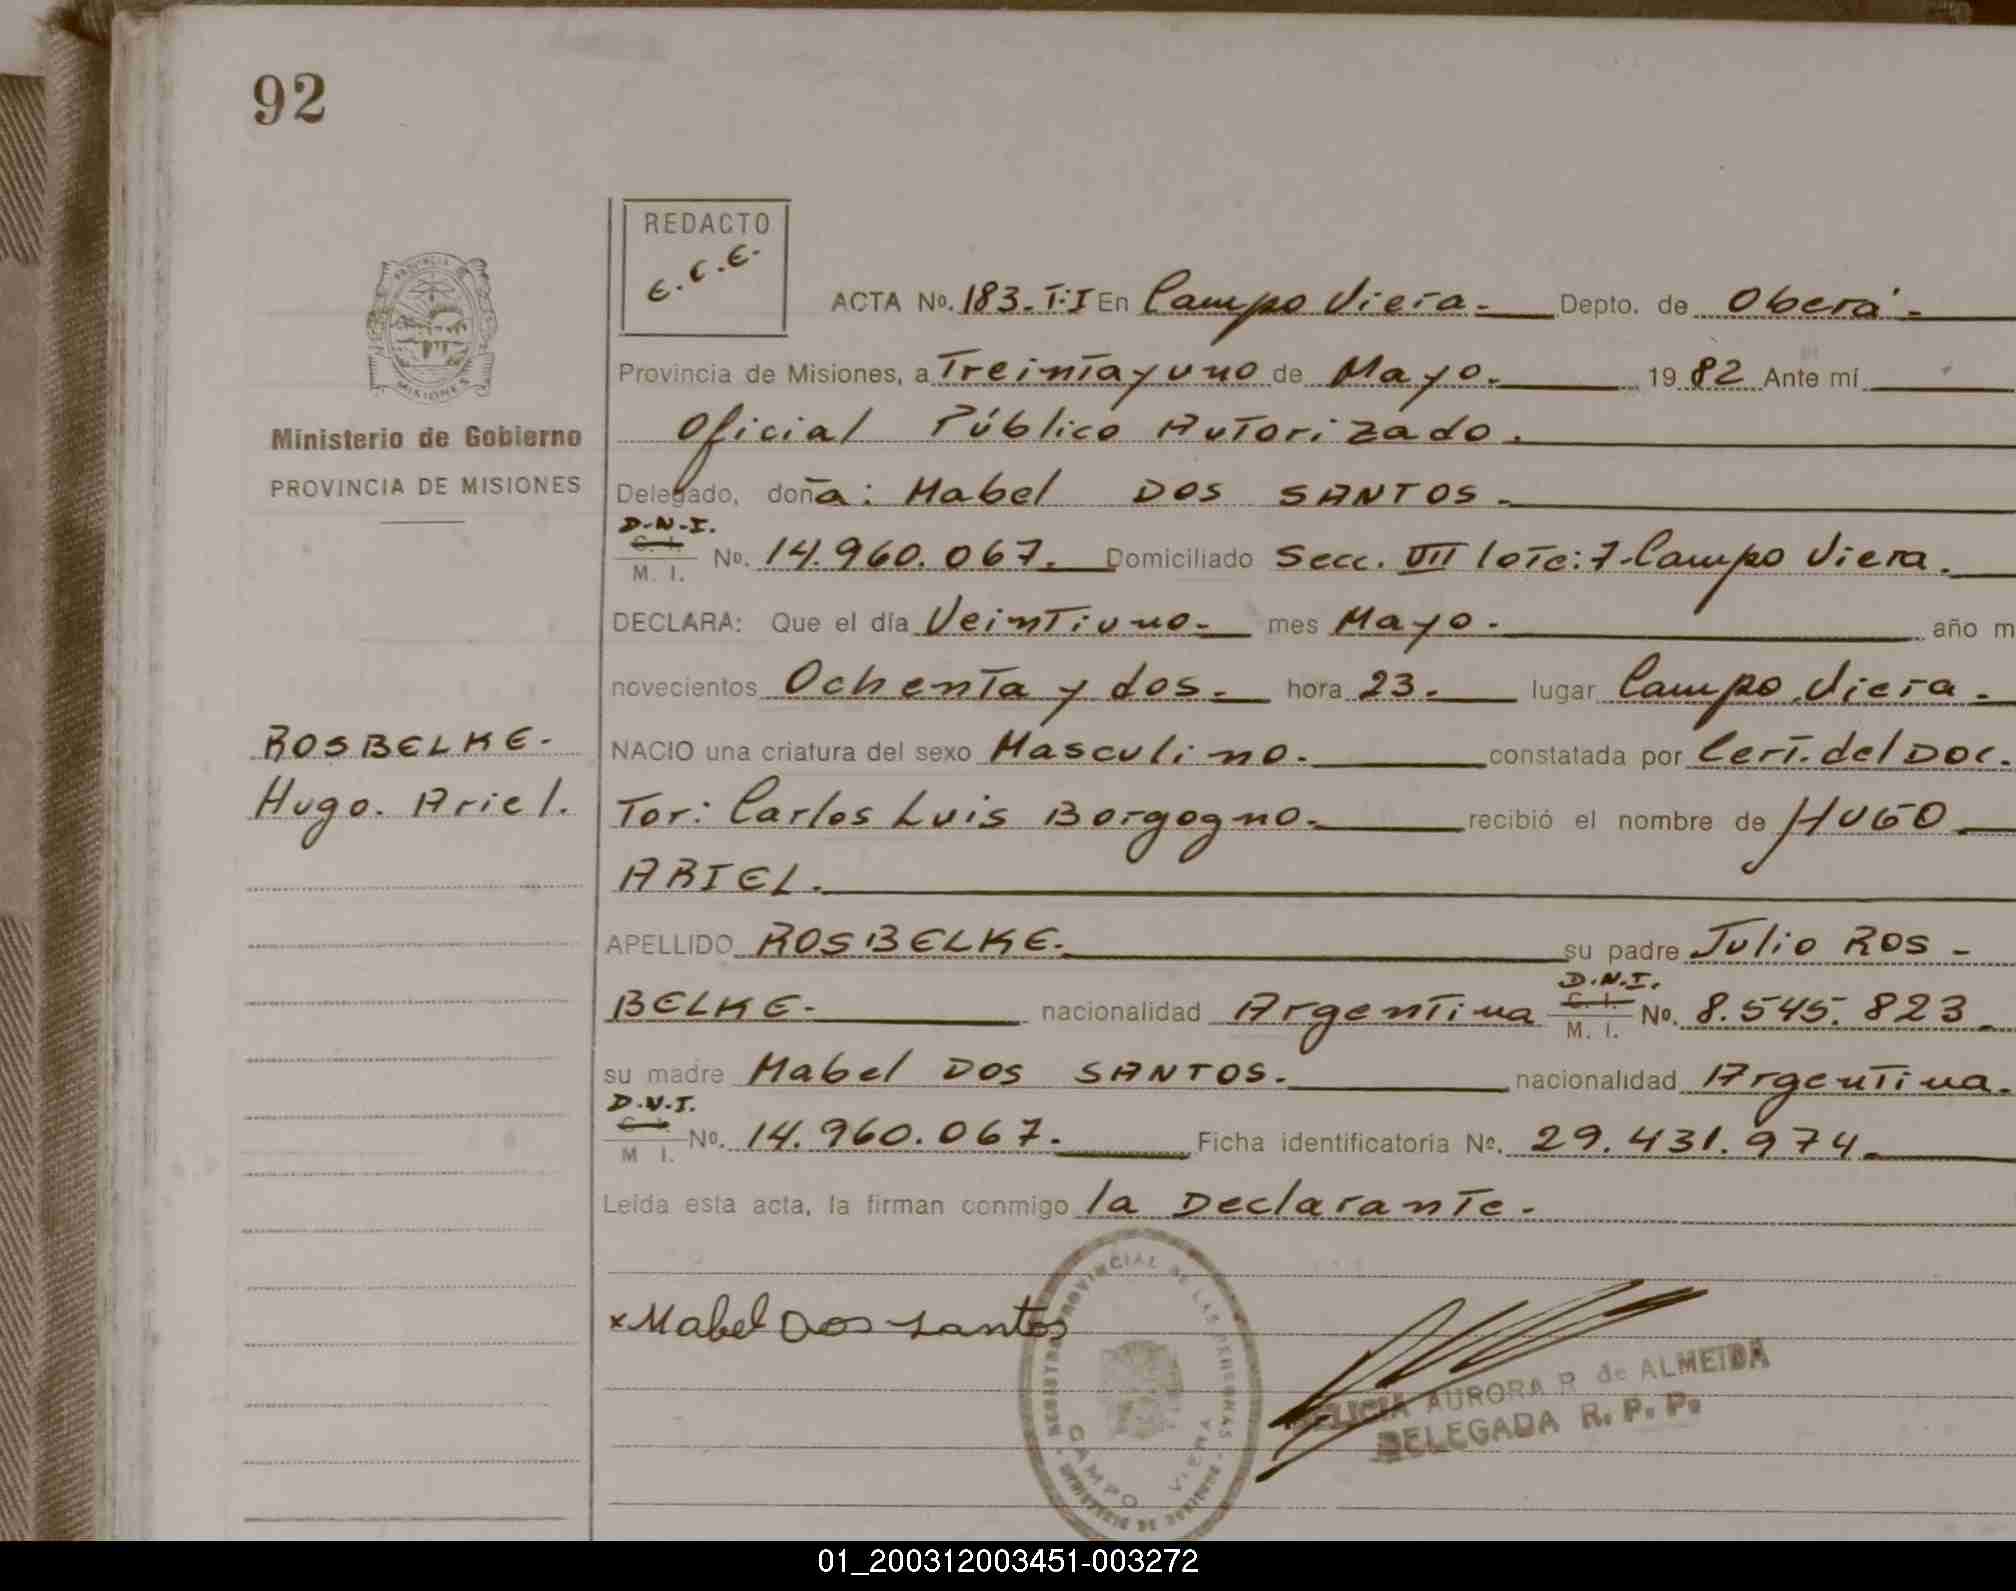 92
REDACTO
E.C.E.
ACTA No. 183. T:I En Campo Viera. Depto. de Oberá.
Provincia de Misiones, a Treinta y uno de Mayo. 19 82 Ante mí
Ministerio de Gobierno
PROVINCIA DE MISIONES
Oficial Público Autorizado.
Delegado, doña: Mabel DOS SANTOS.
D.N.I.
C. I.
M. I. No. 14.960.067. Domiciliado Secc. VIII lote: 7. Campo Viera.
DECLARA: Que el día Veintiuno. mes Mayo. año m
novecientos Ochenta y dos. hora 23. lugar Campo Viera.
ROSBELKE.
Hugo. Ariel.
NACIO una criatura del sexo Masculino. constatada por Cert. del Doc.
Tor: Carlos Luis Borgogno. recibió el nombre de HUGO
ARIEL.
APELLIDO ROSBELKE. su padre Julio ROS-
BELKE. nacionalidad Argentina D.N.I. C. I. M. I. No. 8.545.823
su madre Mabel DOS SANTOS. nacionalidad Argentina.
D.N.I.
C. I.
M I. No. 14.960.067. Ficha identificatoria No. 29.431.974.
Leída esta acta, la firman conmigo la Declarante.
x Mabel Dos Santos
REGISTRO PROVINCIAL DE LAS PERSONAS
CAMPO VIERA
AURORA R de ALMEIDA
DELEGADA R. P. P.
PROVINCIA DE MISIONES
01_200312003451-003272